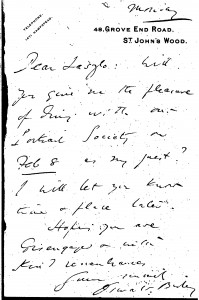 Monday
TELEPHONE:
48, GROVE END ROAD,
ST JOHN'S WOOD.
Dear László: Will
you give me the pleasure
of dining with our
Portrait Society on
Feb 8 as my guest?
I will let you know
time & place later.
Hoping you are
disengaged & with
kind remembrances
Oswald Birley